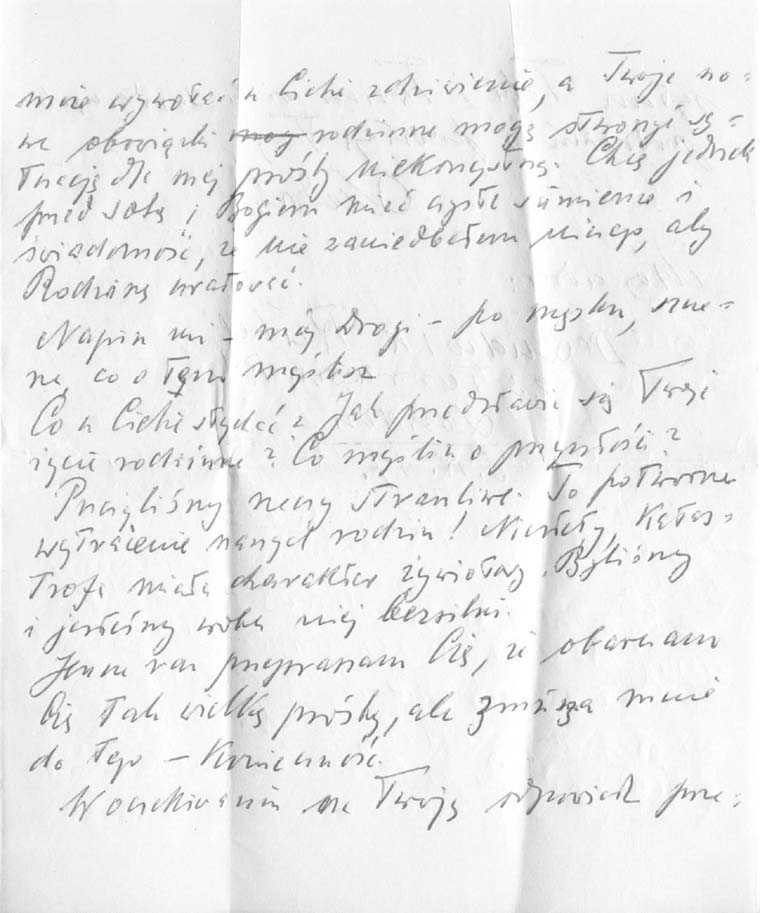 może wywołać u Ciebie zdziwienie, a Twoje no-
we obowiązki mog rodzinne mogą stworzyć sy-
tuację dla mej prośby niekorzystną. Chcę jednak
przed sobą i Bogiem mieć czyste sumienie i
świadomość, że nie zaniedbałem niczego, aby
Rodzinę uratować.
Napisz mi - mój Drogi - po męsku, szcze-
rze, co o tym myślisz
Co u Ciebie słychać? Jak przedstawia się Twoje
życie rodzinne? Co myślisz o przyszłości?
Przeżyliśmy rzeczy straszliwe. To potworne
wytracenie naszych rodzin! Niestety, katas-
trofa miała charakter żywiołowy. Byliśmy
i jesteśmy wobec niej bezsilni.
Jeszcze raz przepraszam Cię, że obarczam
Cię tak wielką prośbą, ale zmusza mnie
do tego - konieczność.
W oczekiwaniu na Twoją odpowiedź prze-